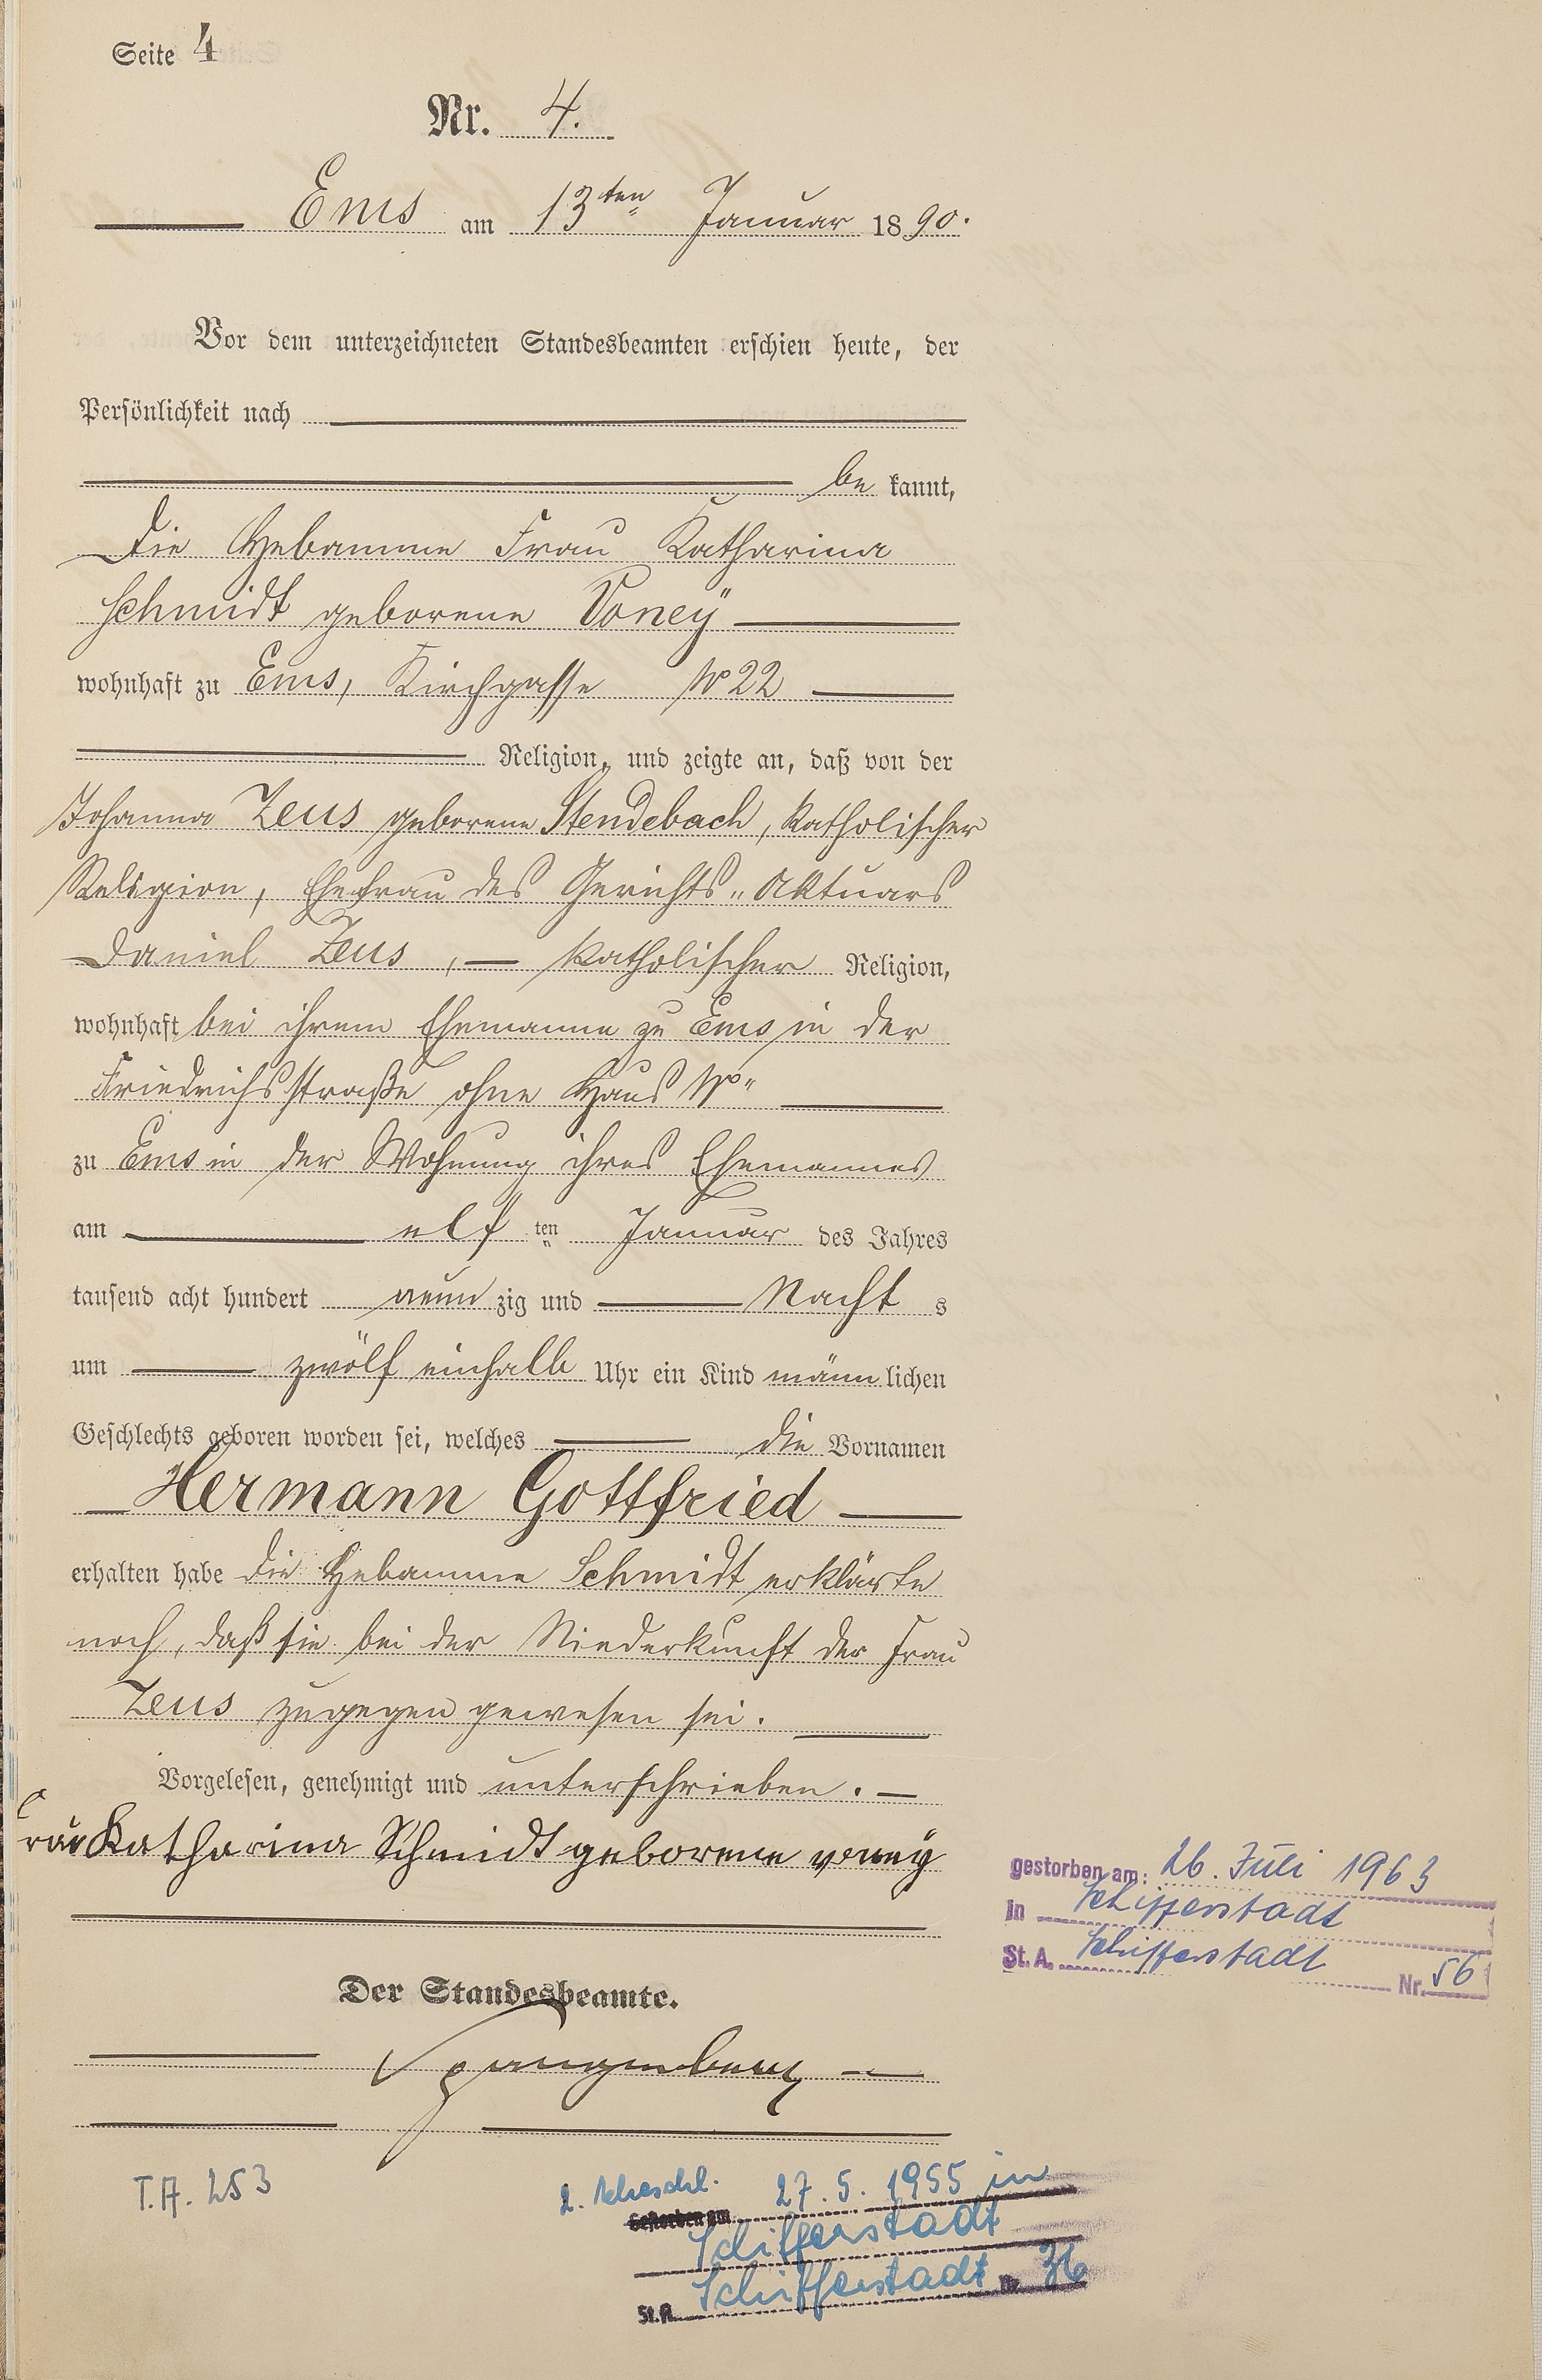 Seite 4
Nr. 4.
Ems am 13ten Januar 1890.
Vor dem unterzeichneten Standesbeamten erschien heute, der
Persönlichkeit nach
be kannt,
die Hebamme Frau Katharina
Schmidt geborene Voneÿ
wohnhaft zu Ems, Kirchgasse No 22
Religion, und zeigte an, daß von der
Johanna Zeus geborene Stendebach, katholischer
Religion, Ehefrau des Gerichts-Aktuars
Daniel Zeus, — katholischer Religion,
wohnhaft bei ihrem Ehemanne zu Ems in der
Friedrichsstraße ohne Haus No
zu Ems in der Wohnung ihres Ehemannes
am elf ten Januar des Jahres
tausend acht hundert neun zig und Nacht s
um zwölf einhalb Uhr ein Kind männ lichen
Geschlechts geboren worden sei, welches die Vornamen
Hermann Gottfried
erhalten habe die Hebamme Schmidt erklärte
noch, daß sie bei der Niederkunft der Frau
Zeus zugegen gewesen sei.
Vorgelesen, genehmigt und unterschrieben. —
Frau Katharina Schmidt geborene voneÿ
gestorben am: 26. Juli 1963
in Schifferstadt
St. A. Schifferstadt Nr. 56
Der Standesbeamte.
Spangenberg
T.A. 253
2. Eheschl. 27.5.1955 in
Gestorben am
Schifferstadt
St.A. Schifferstadt Nr. 36